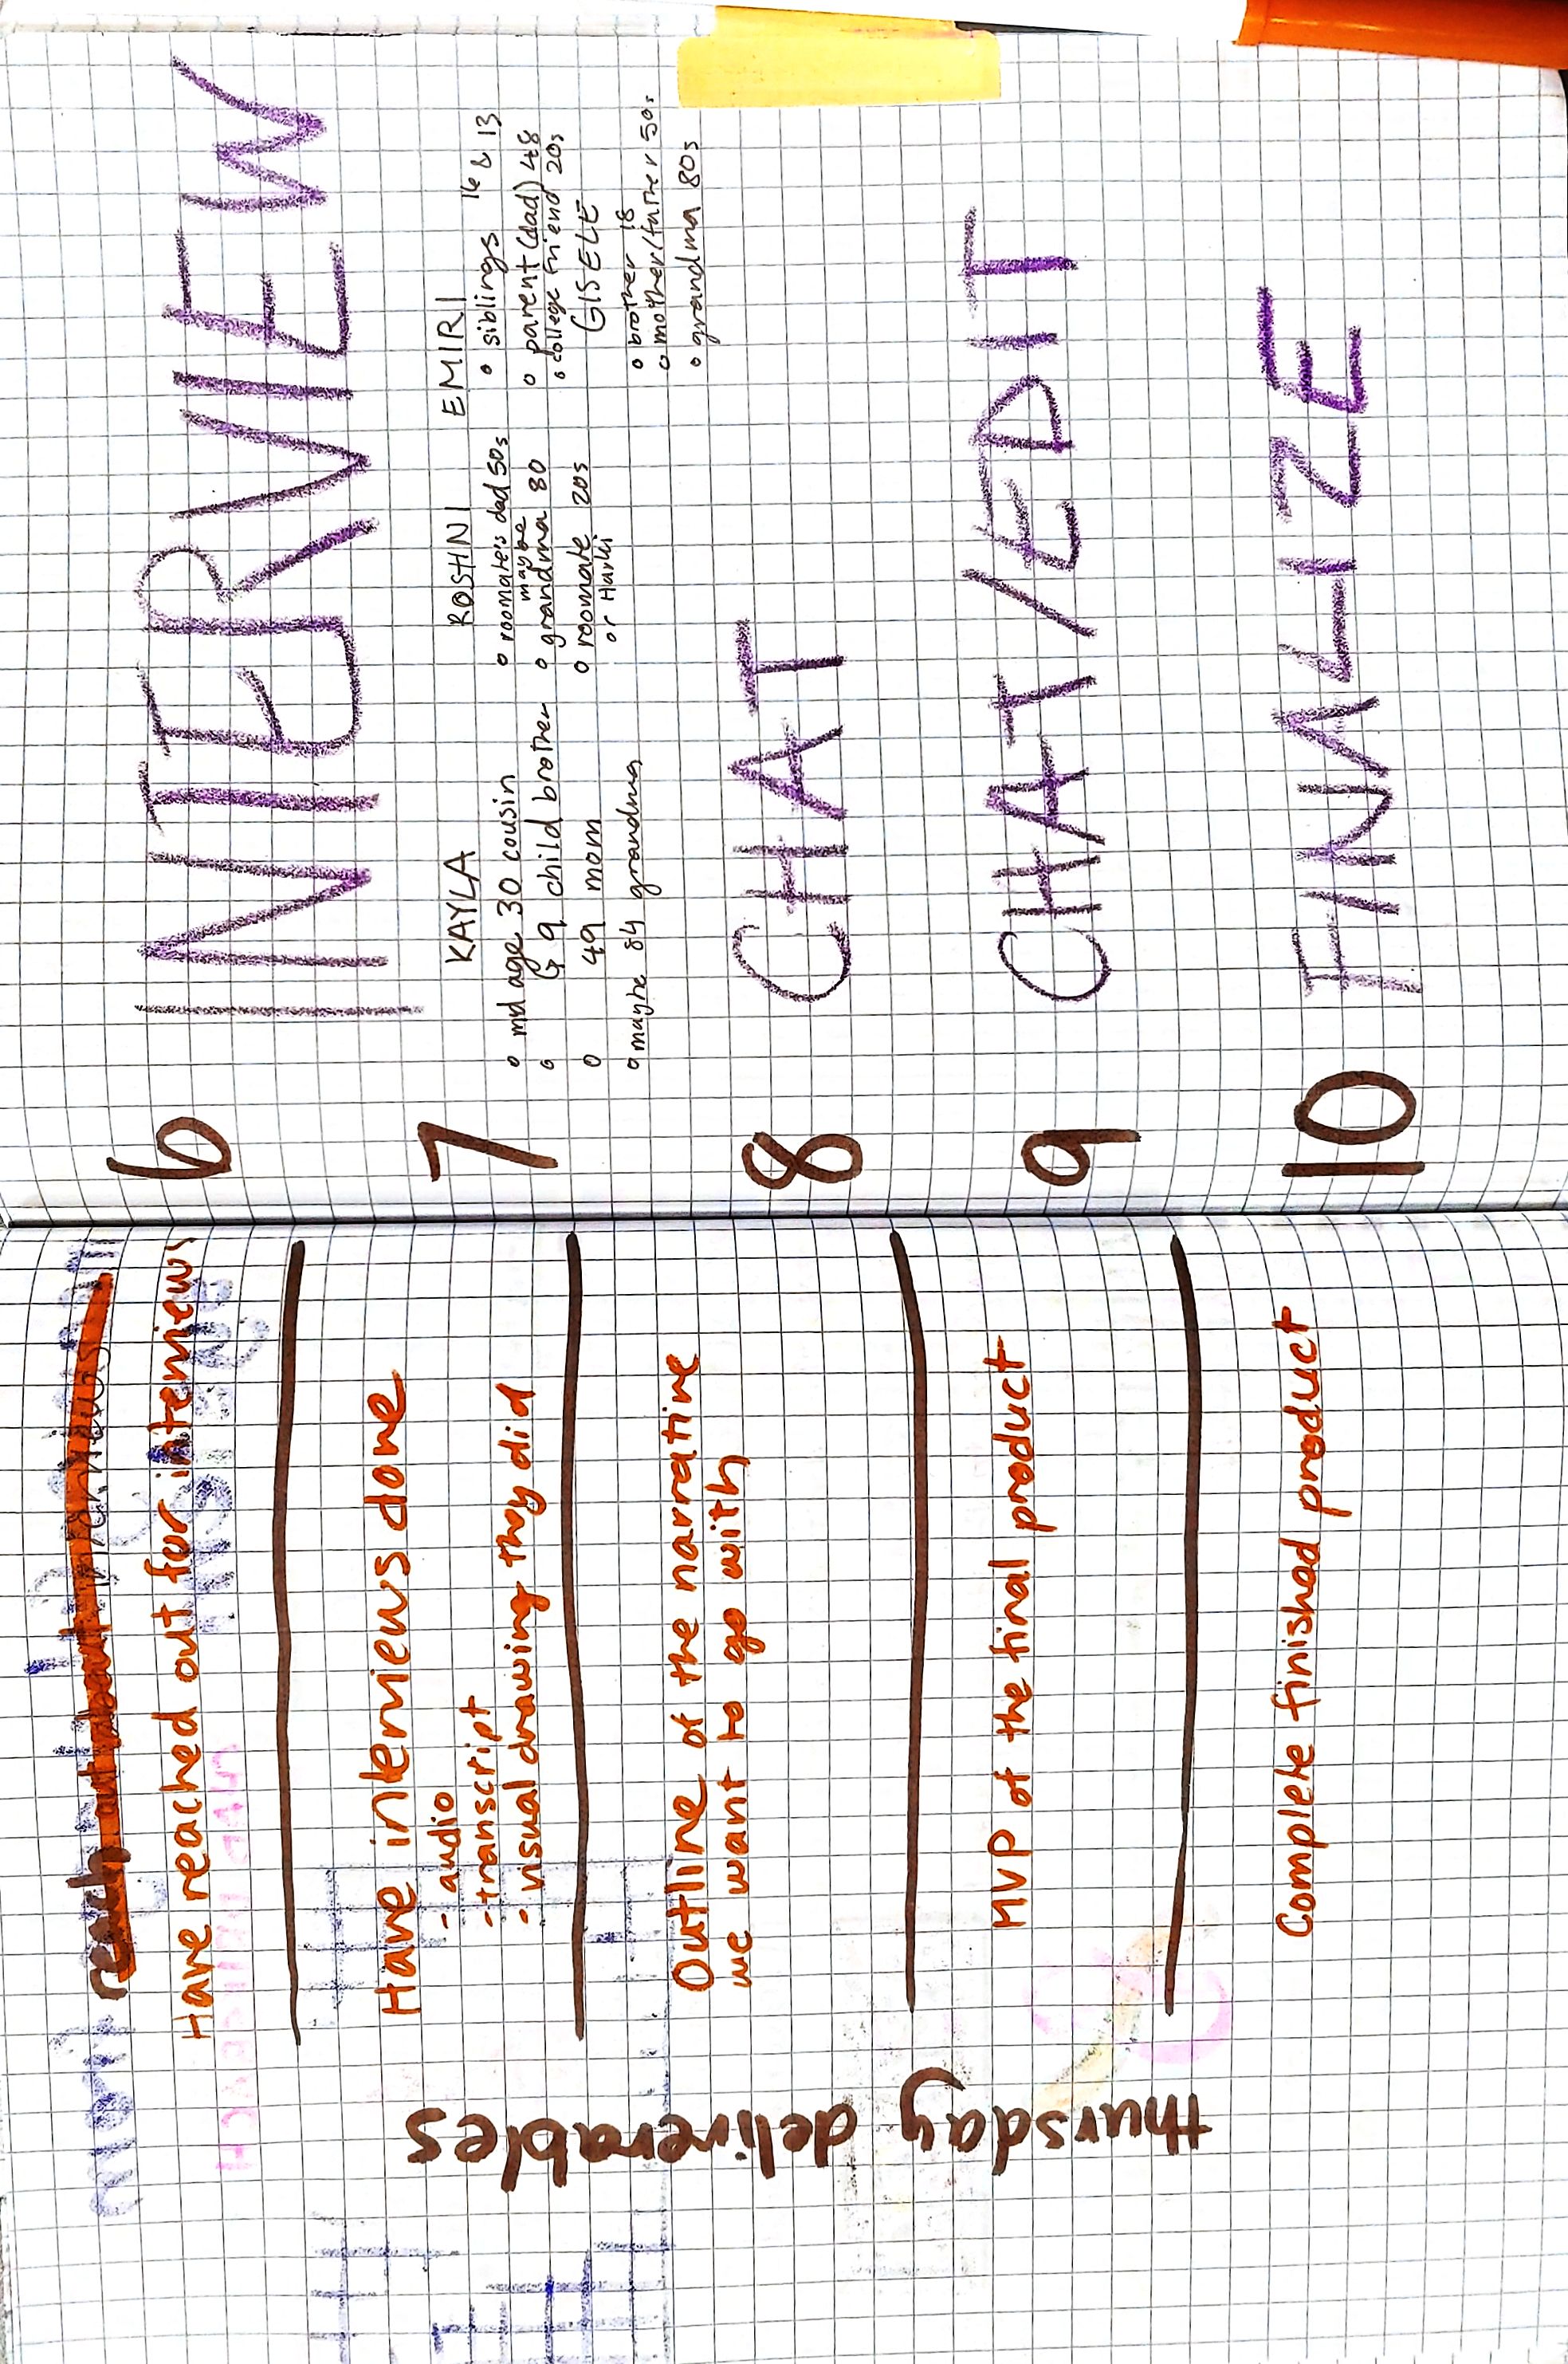 reach out about interviews
Have reached out for interviews
Have interviews done
- audio
- transcript
- visual drawing they did
Outline of the narrative
we want to go with
MVP of the final product
Complete finished product
thursday deliverables
6
INTERVIEW
7
KAYLA
md age 30 cousin
↳ 9 child brother
49 mom
maybe 84 grandma
ROSHNI
roomate's dad 50s
maybe
grandma 80
roomate 20s
or Harki
EMIRI
siblings 16 & 13
parent (dad) 48
college friend 20s
GISELE
brother 18
mother/father 50s
grandma 80s
8
CHAT
9
CHAT/EDIT
10
FINALIZE